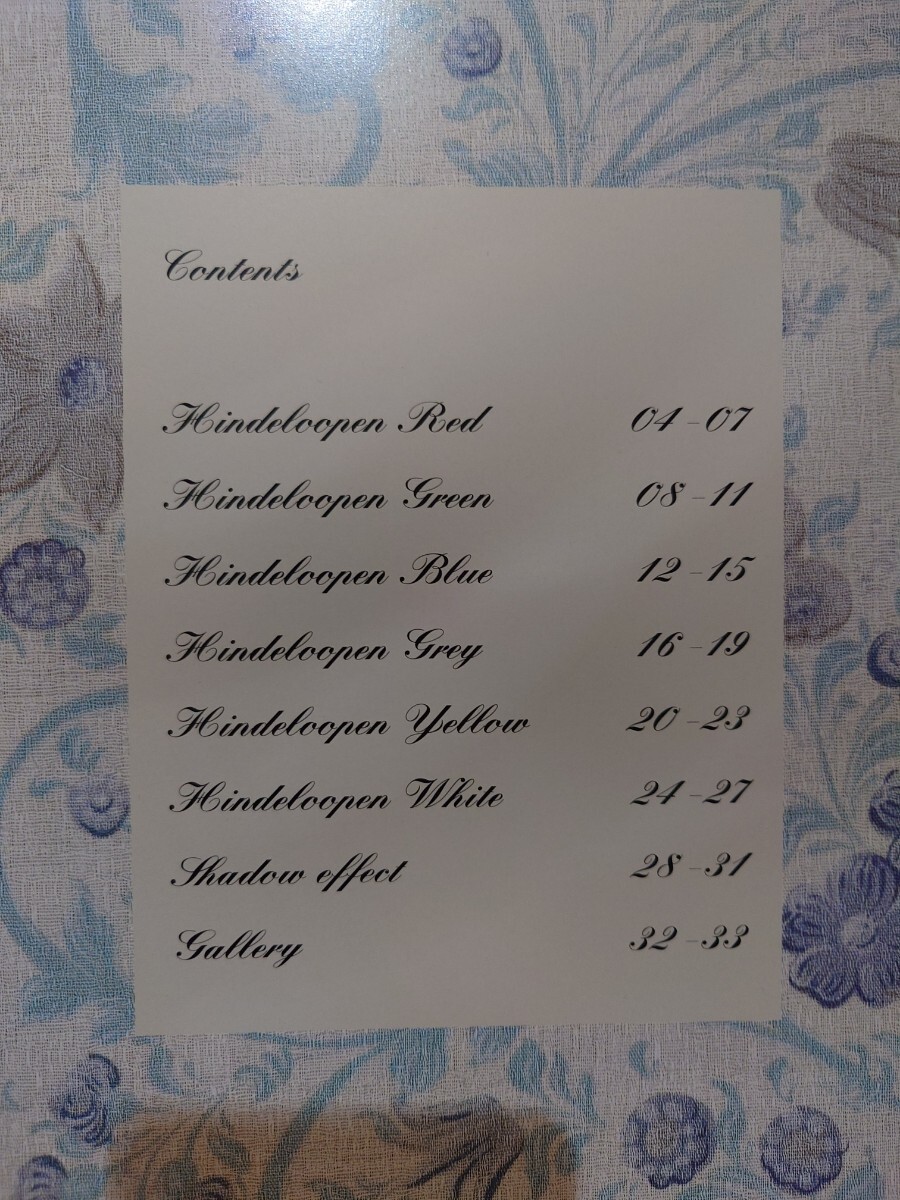 Contents
Hindeloopen Red 04 - 07
Hindeloopen Green 08 - 11
Hindeloopen Blue 12 - 15
Hindeloopen Grey 16 - 19
Hindeloopen Yellow 20 - 23
Hindeloopen White 24 - 27
Shadow effect 28 - 31
Gallery 32 - 33